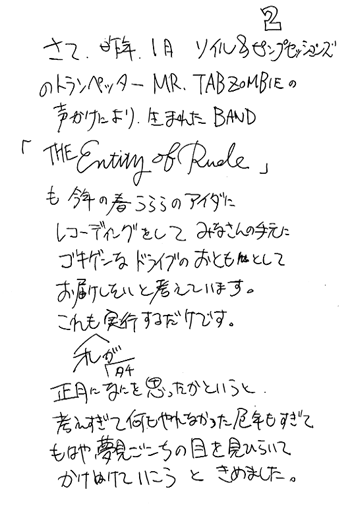 2
さて、昨年、1月 ソイル&ピンプセッションズ
のトランペッター MR. TABZOMBIEの
声かけにより、生まれた BAND
「THE Entity of Rude」
も 今年の春うららのアイダに
レコーディングをして みなさんの手元に
ゴキゲンな ドライブの おともにとして
お届けしたいと考えています。
これも実行するだけです。
オレが
正月になにを思ったかというと、
考えすぎて何もやれなかった厄年もすぎて
もはや夢見ごこちの目を見ひらいて
かけぬけていこう と きめました。